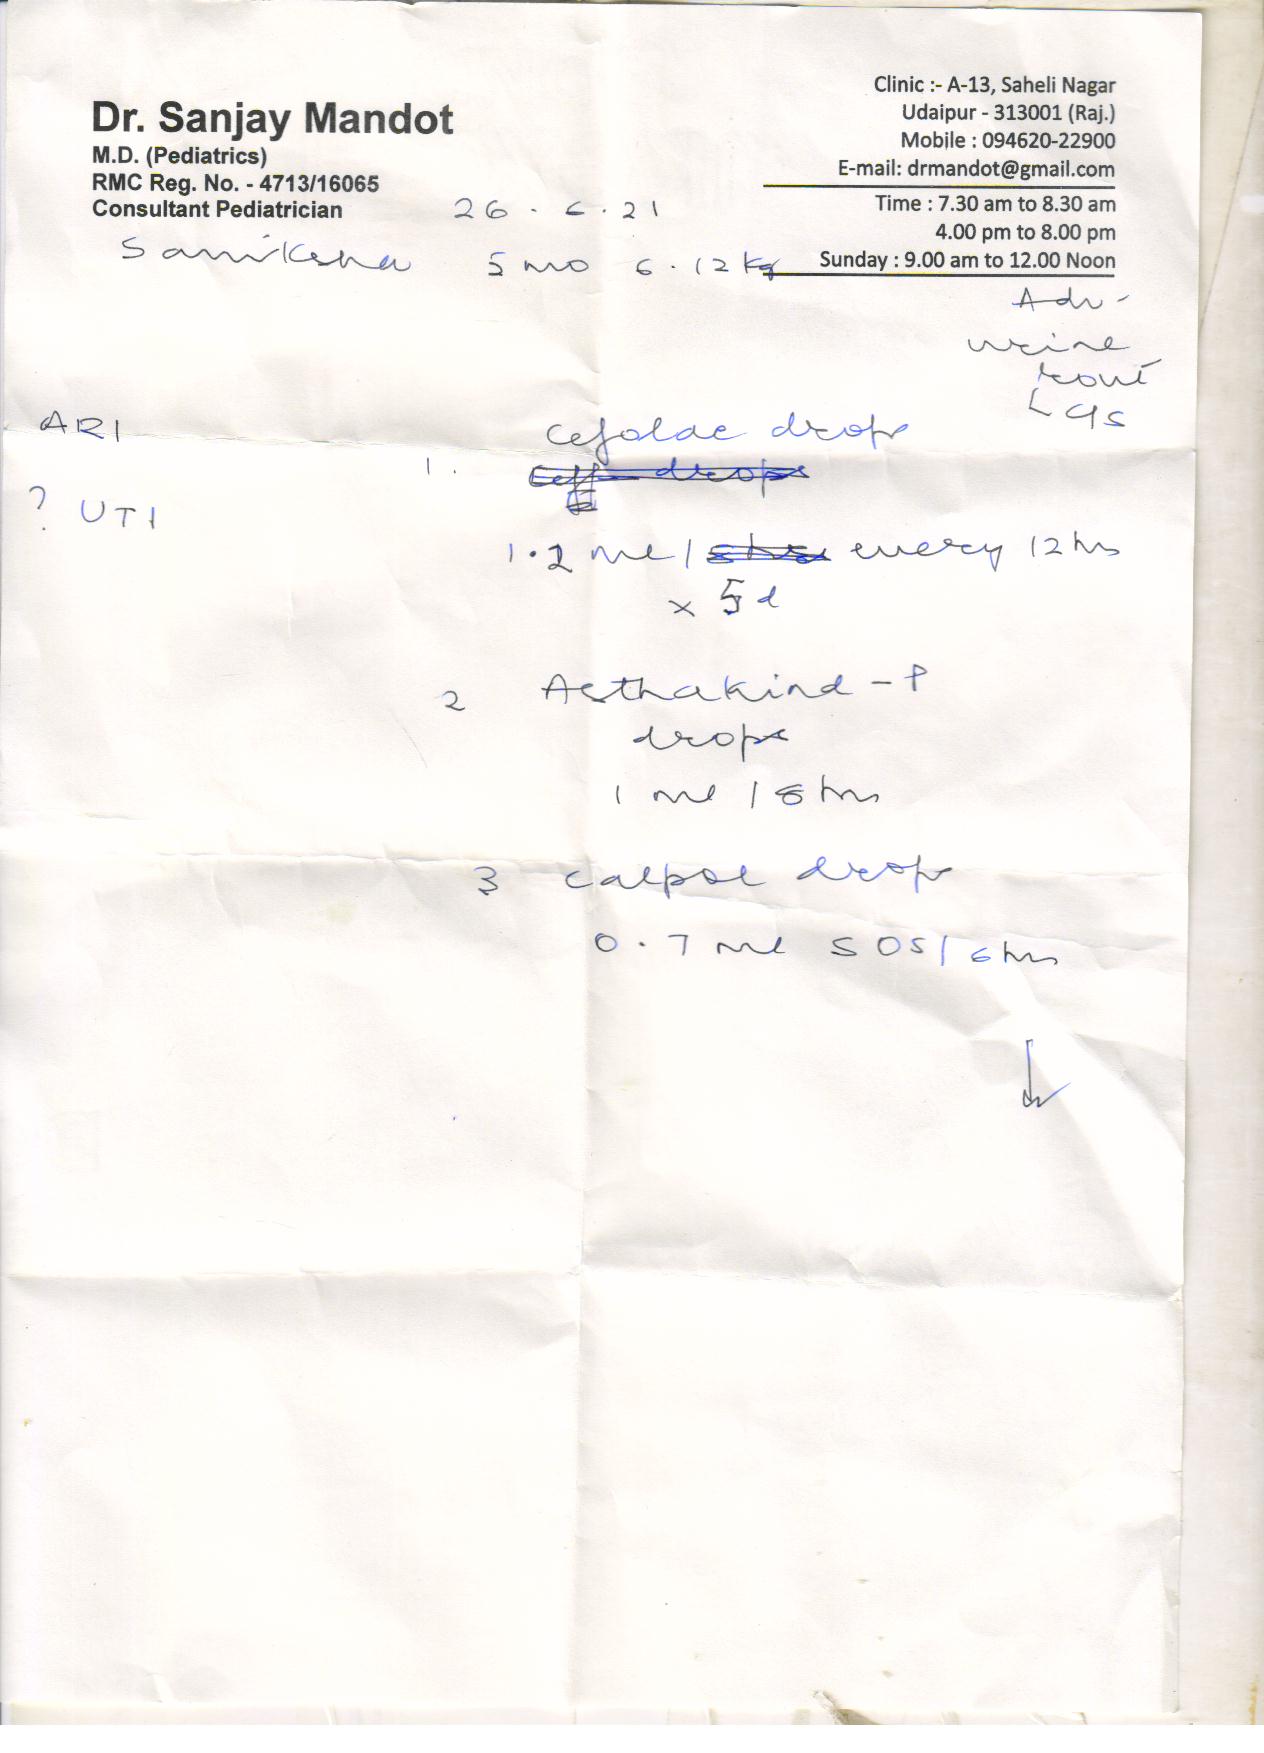 Dr. Sanjay Mandot
M.D. (Pediatrics)
RMC Reg. No. - 4713/16065
Consultant Pediatrician
Clinic :- A-13, Saheli Nagar
Udaipur - 313001 (Raj.)
Mobile : 094620-22900
E-mail: drmandot@gmail.com
Time : 7.30 am to 8.30 am
4.00 pm to 8.00 pm
Sunday : 9.00 am to 12.00 Noon
26.6.21
Samiksha 5 mo 6.12 kg
Adv-
urine
ARI
? UTI
1. drops
1.2 ml / every 12 hrs
x 5 d
2 Asthakind-P
drops
1 ml / hrs
3 calpol drops
0.7 ml SOS/6 hrs